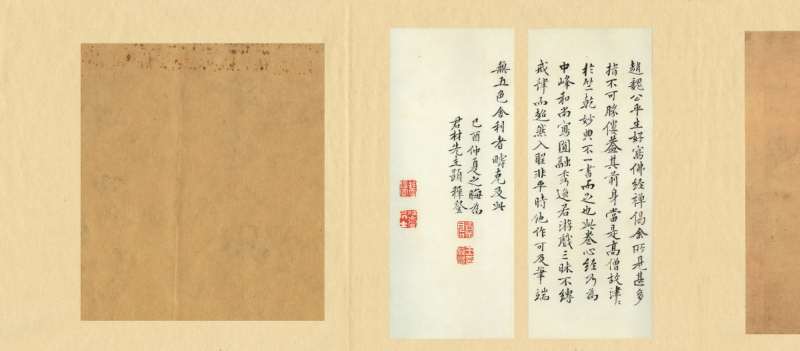 趙魏公平生好寫佛經禪偈余所見甚多
指不可勝僂蓋其前身當是高僧故津津
於竺乾妙典不一書而足也此卷心經乃為
中峰和尚寫圓融秀逸若游戲三昧不縛
戒律而超然入聖非平時他作可及筆端
無五色舍利者疇克及此
己酉仲夏之晦為
君材先生題穉登